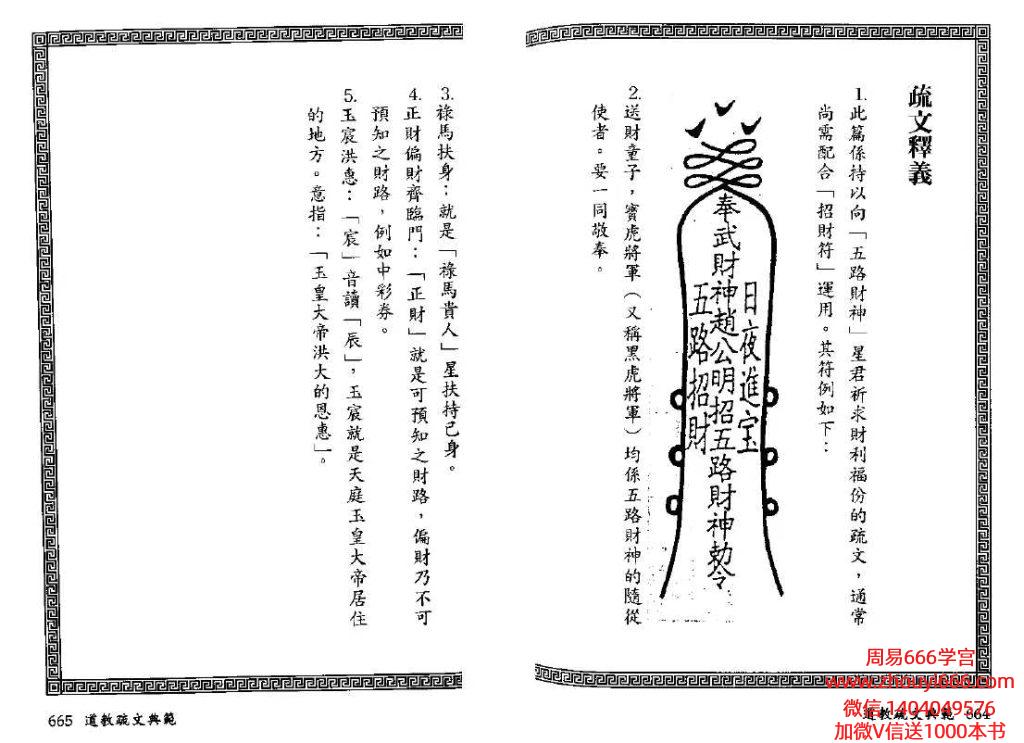 疏文釋義
1.此篇係持以向「五路財神」星君祈求財利福份的疏文，通常
尚需配合「招財符」運用。其符例如下：
日夜進宝
奉武財神趙公明招五路財神勅令
五路招財
2.送財童子，寶虎將軍（又稱黑虎將軍）均係五路財神的隨從
使者。要一同敬奉。
3.祿馬扶身：就是「祿馬貴人」星扶持己身。
4.正財偏財齊臨門：「正財」就是可預知之財路，偏財乃不可
預知之財路，例如中彩券。
5.玉宸洪惠：「宸」音讀「辰」，玉宸就是天庭玉皇大帝居住
的地方。意指：「玉皇大帝洪大的恩惠」。
665 道教疏文典範
道教疏文典範 664
周易666学宫
www.zhouyi666.com
微信 1404049576
加微V信送1000本书